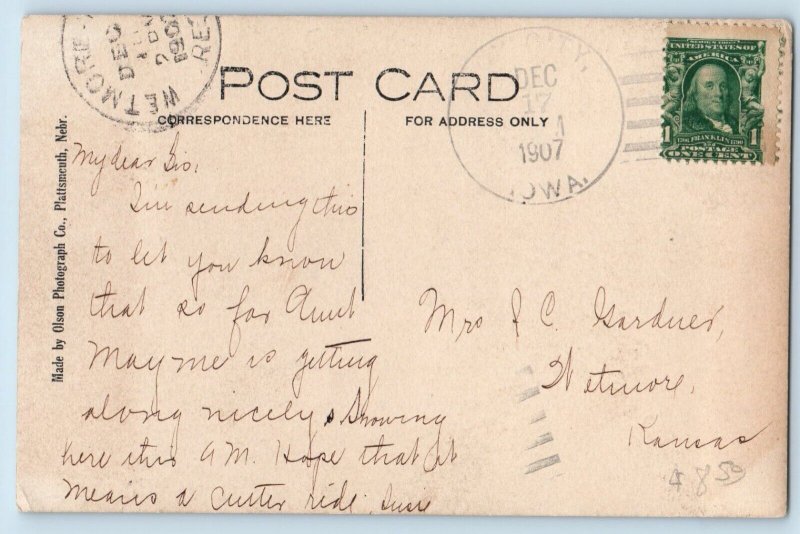 WETMORE
DEC
REC
POST CARD
CORRESPONDENCE HERE
FOR ADDRESS ONLY
CITY,
DEC
17
1907
IOWA.
UNITED STATES OF
AMERICA
1 FRANKLIN 1
POSTAGE
ONE CENT
Made by Olson Photograph Co., Plattsmouth, Nebr.
My dear Sis,
I'm sending this
to let you know
that so far Aunt
Mayme is getting
along nicely. Snowing
here this A.M. Hope that it
means a cutter ride. Susie
Mrs J C. Gardner,
Wetmore,
Kansas